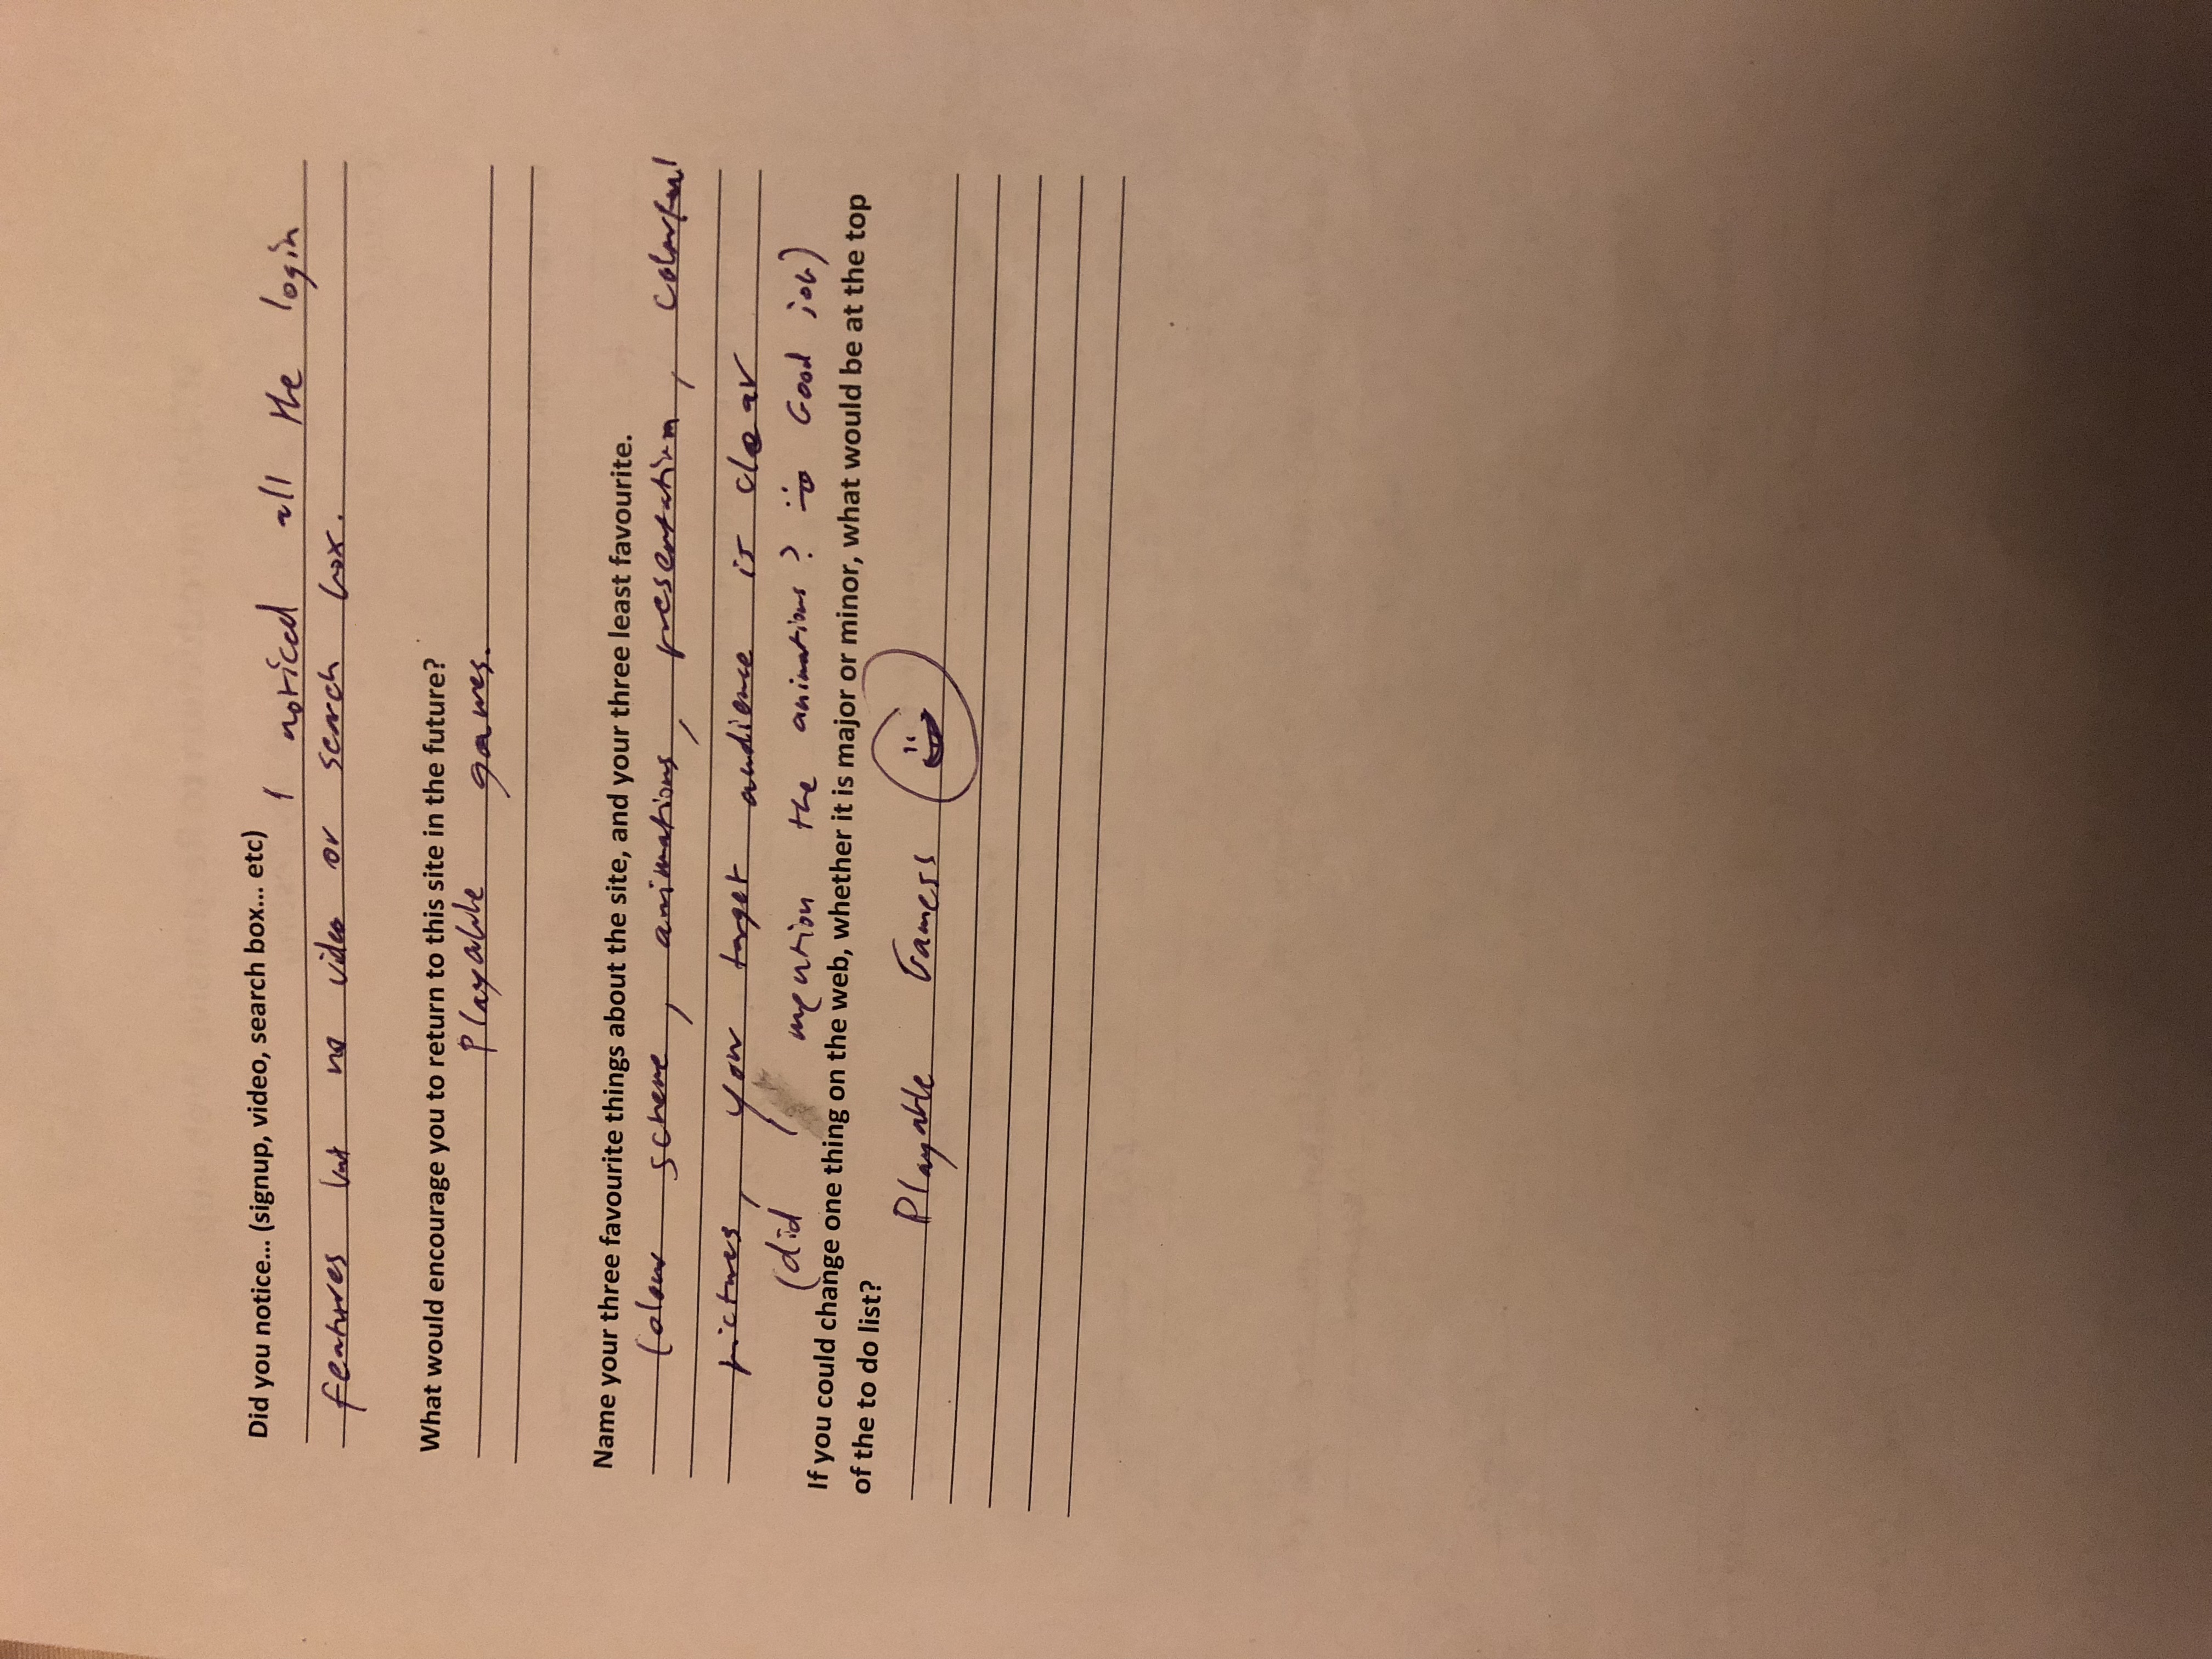 Did you notice... (signup, video, search box... etc)
I noticed all the login
features but no video or search box.
What would encourage you to return to this site in the future?
Playable games.
Name your three favourite things about the site, and your three least favourite.
Colour scheme, animations, presentation, colorful
pictures, your target audience is clear
(did I mention the animations? Good job)
If you could change one thing on the web, whether it is major or minor, what would be at the top
of the to do list?
Playable Gamess